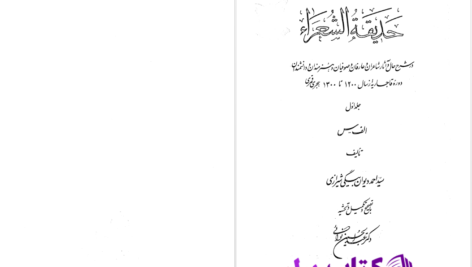 حدیقة الشعراء
در شرح حال و آثار شاعران و عارفان و صوفیان و هنرمندان و دانشمندان
دورهٔ قاجاریه از سال ۱۲۰۰ تا ۱۳۰۰ هجری قمری
جلد اول
الف س
تألیف
سید احمد دیوان بیگی شیرازی
تصحیح و تکمیل و تحشیه
دکتر عبدالحسین نوائی